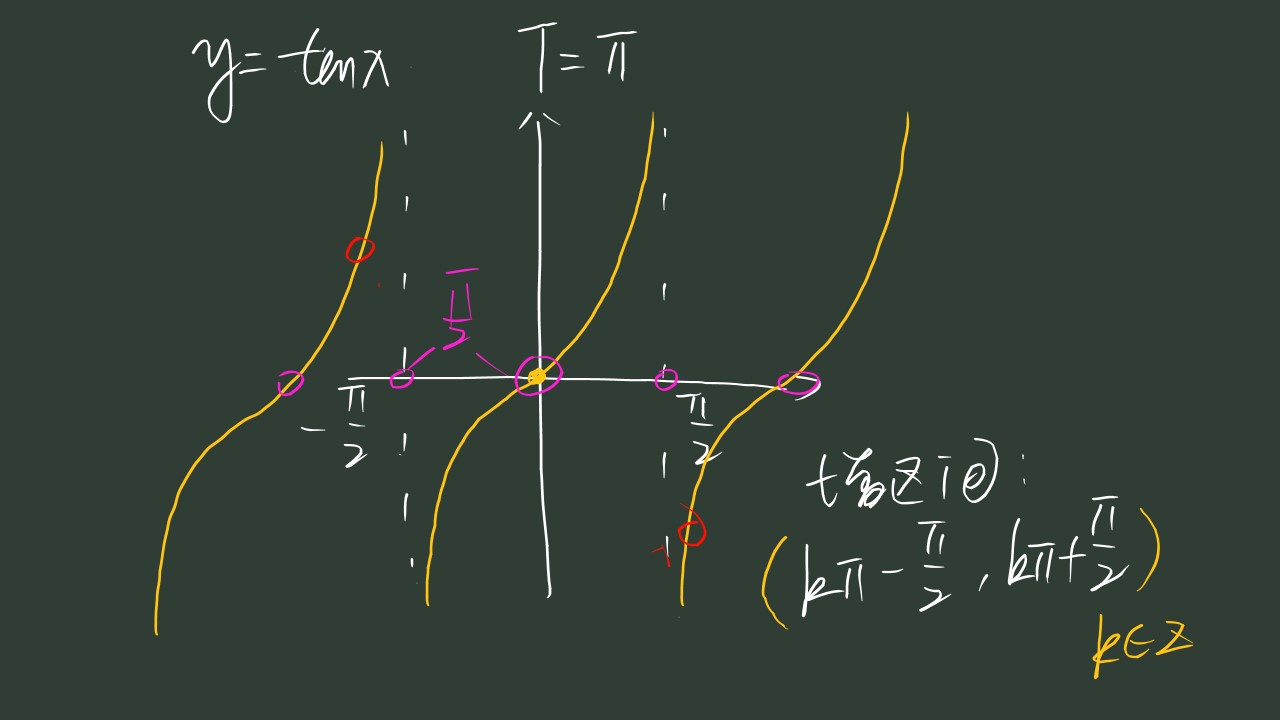 y=tanx
T=π
π/2
-π/2
π/2
增区间:
(kπ-π/2, kπ+π/2)
k∈Z